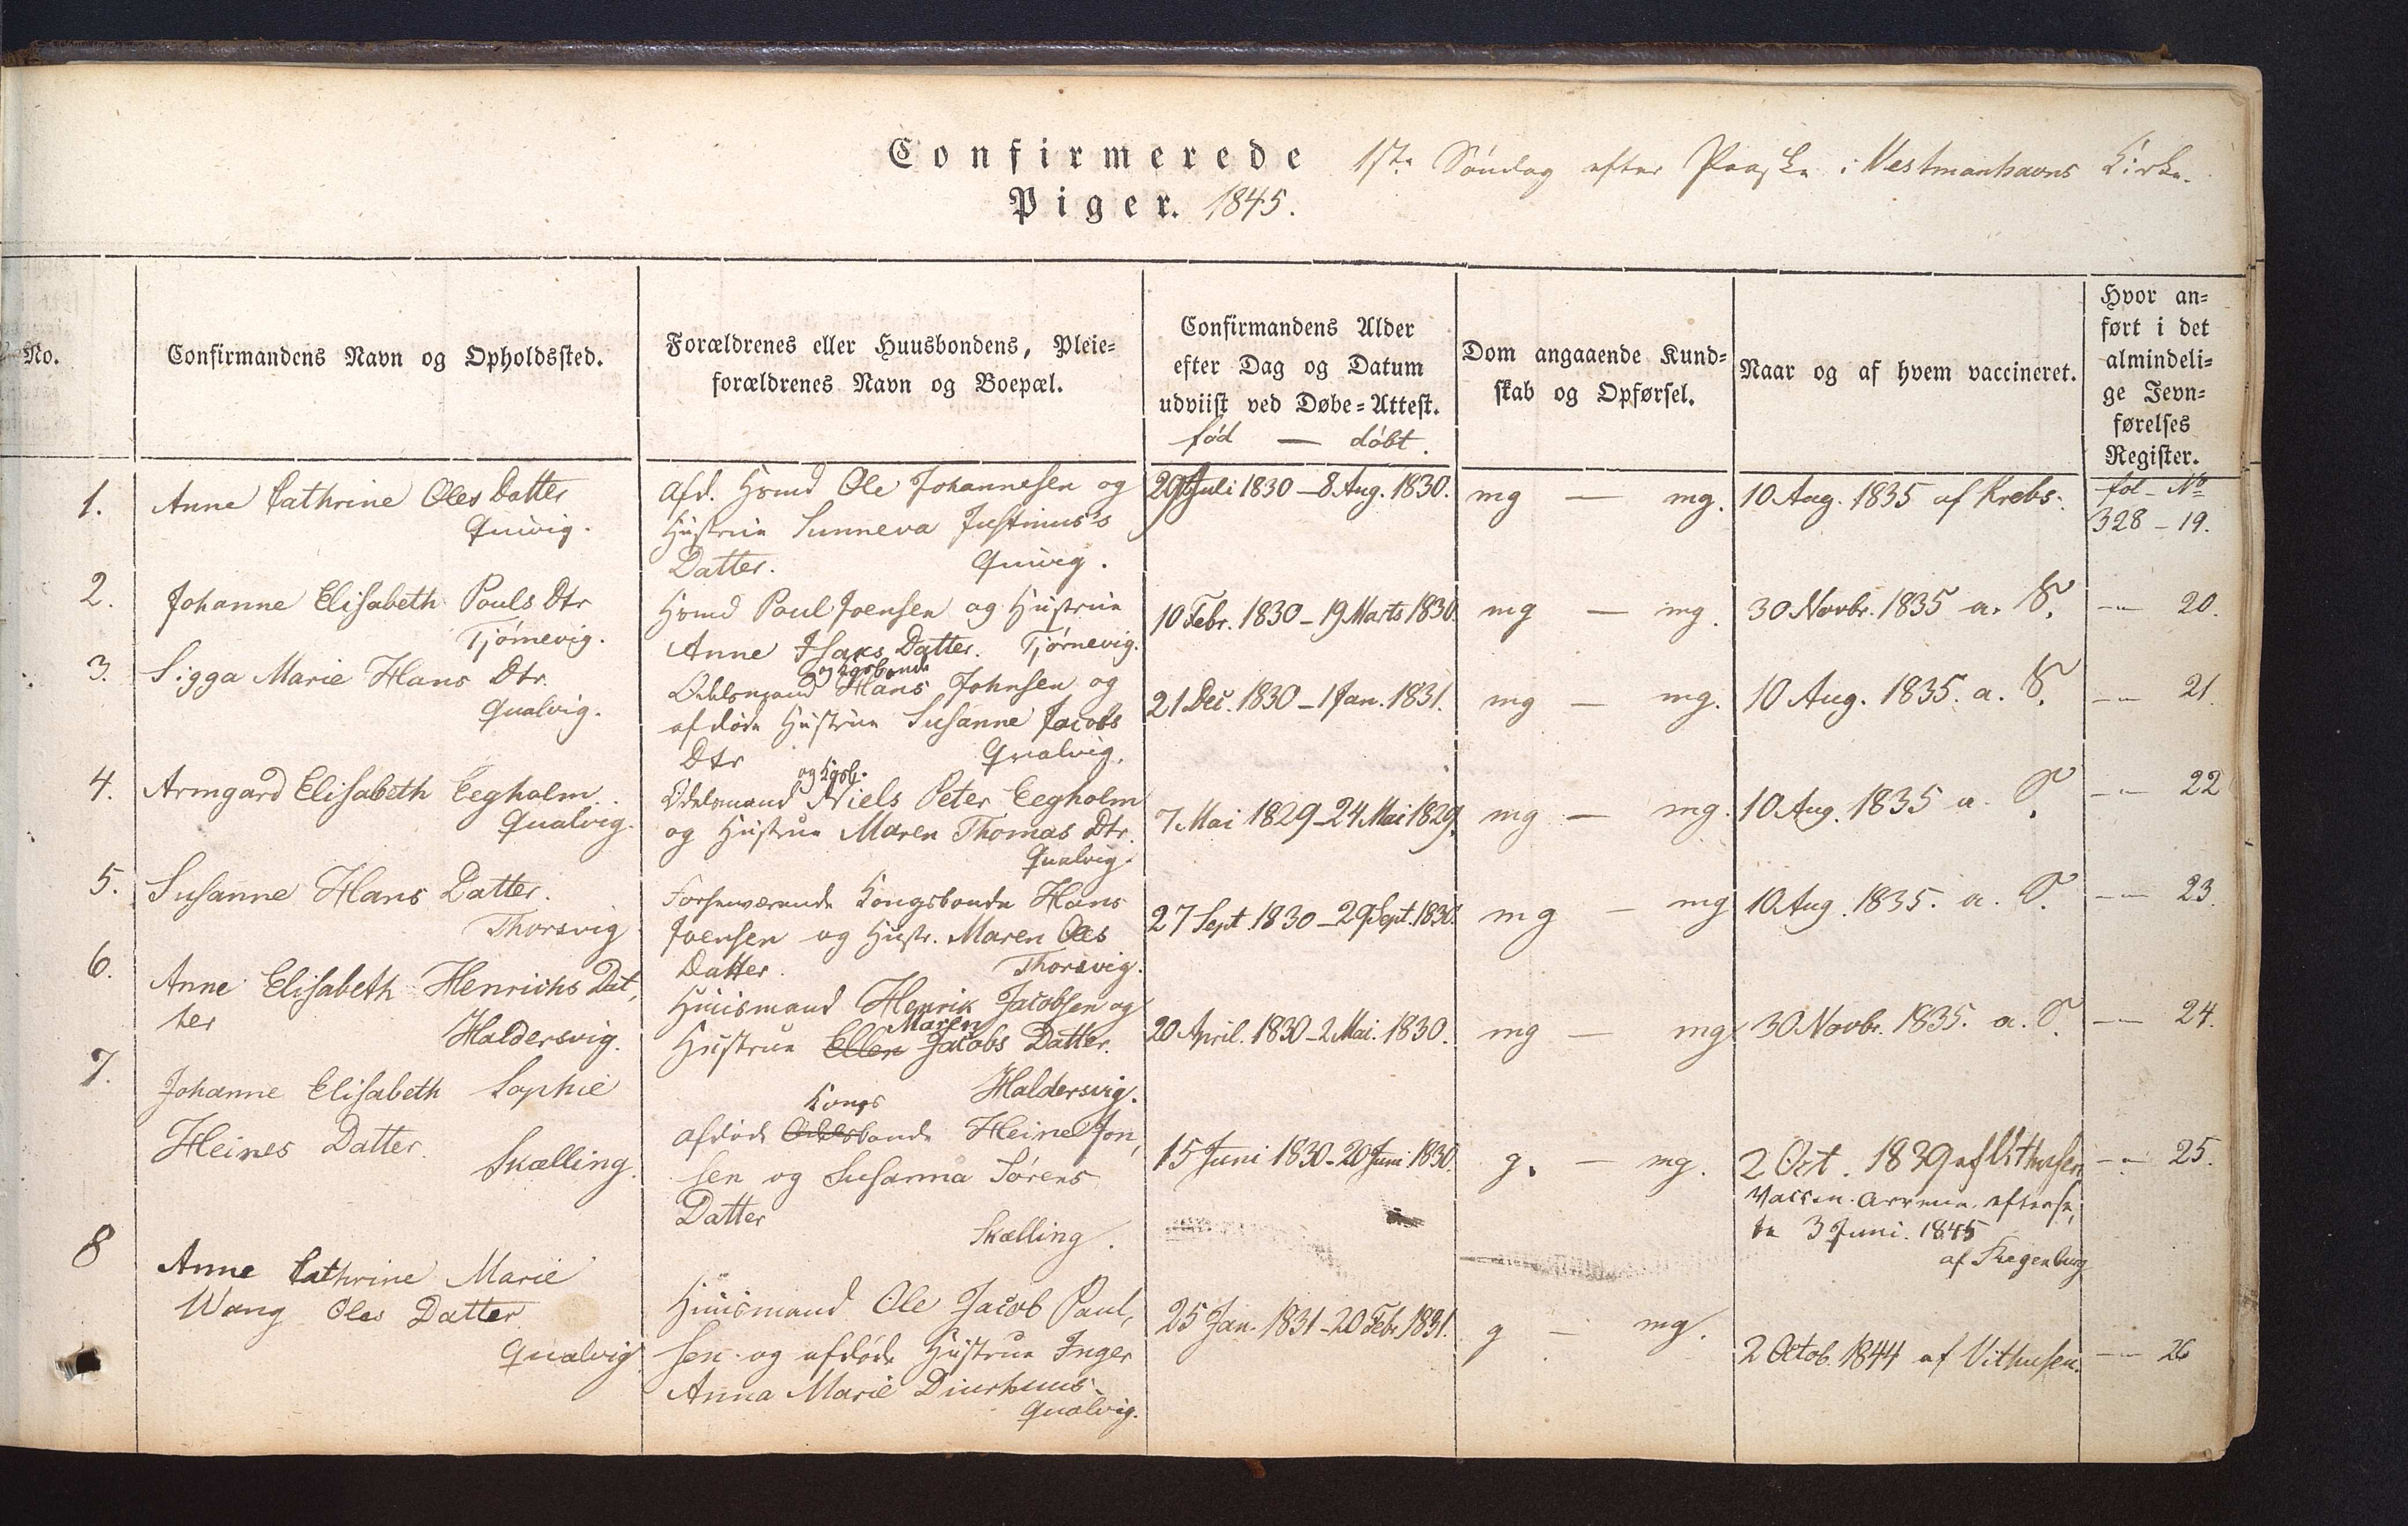 Confirmerede 1ste Søndag efter Paaske i Vestmanhavns Kirke.
Piger. 1845.
No.
Confirmandens Navn og Opholdssted.
Forældrenes eller Huusbondens, Pleie=
forældrenes Navn og Boepæl.
Confirmandens Alder
efter Dag og Datum
udviist ved Døbe=Attest.
født — døbt.
Dom angaaende Kund=
skab og Opførsel.
Naar og af hvem vaccineret.
Hvor an=
ført i det
almindeli=
ge Jevn=
førelses
Register.
fol - No
1.
Anne Cathrine Oles Datter
Quivig.
Afd. Hsmd Ole Johannesen og
Hustrue Sunneva Justinus's
Datter. Quivig.
29 Juli 1830 – 8 Aug. 1830.
mg — mg.
10 Aug. 1835 af Krebs.
328 – 19.
2.
Johanne Elisabeth Pouls Dtr
Tjørnevig.
Hsmd Poul Joensen og Hustrue
Anne Isaks Datter. Tjørnevig.
10 Febr. 1830 – 19 Marts 1830.
mg — mg.
30 Novbr. 1835 a. S.
—"— 20.
3.
Sigga Marie Hans Dtr.
Qualvig.
og Kgsbonde
Odelsmand Hans Johnsen og
afdøde Hustrue Susanne Jacobs
Dtr Qvalvig.
21 Dec. 1830 – 1 Jan. 1831.
mg — mg.
10 Aug. 1835. a. S.
—"— 21.
4.
Armgard Elisabeth Eegholm.
Qualvig.
og Kgsb.
Odelsmand Niels Peter Eegholm
og Hustrue Maren Thomas Dtr.
Qualvig.
7 Mai 1829 – 24 Mai 1829.
mg — mg.
10 Aug. 1835 a. S.
—"— 22
5.
Susanne Hans Datter.
Thorsvig
Forhenværende Kongsbonde Hans
Joensen og Hustr. Maren Oles
Datter. Thorsvig.
27 Sept. 1830 – 29 Sept. 1830.
mg — mg
10 Aug. 1835. a. S.
—"— 23.
6.
Anne Elisabeth Henrichs Dat,
ter
Haldersvig.
Huusmand Henrik Jacobsen og
Maren
Hustrue Ellen Jacobs Datter.
Haldersvig.
20 April. 1830 – 2 Mai. 1830.
mg — mg
30 Novbr. 1835. a. S.
—"— 24.
7.
Johanne Elisabeth Sophie
Heines Datter.
Skælling.
Kongs
Afdøde Odelsbonde Heine Jon,
sen og Susanna Sørens
Datter
Skælling.
15 Juni 1830 – 20 Juni 1830.
g. — mg.
2 Oct. 1839 af Vithusen
te 3 Juni. 1845
—"— 25.
8
Anne Cathrine Marie
Wang Oles Datter
Qualvig
Huusmand Ole Jacob Paul,
sen og afdøde Hustrue Inger
Anna Marie Diurhuus.
Qualvig.
25 Jan. 1831 – 20 Febr. 1831.
g — mg.
2 Octob. 1844 af Vithusen.
—"— 26